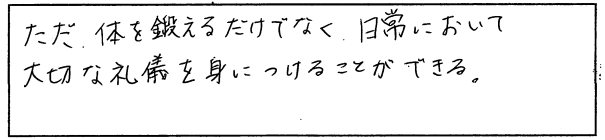 ただ、体を鍛えるだけでなく、日常において
大切な礼儀を身につけることができる。